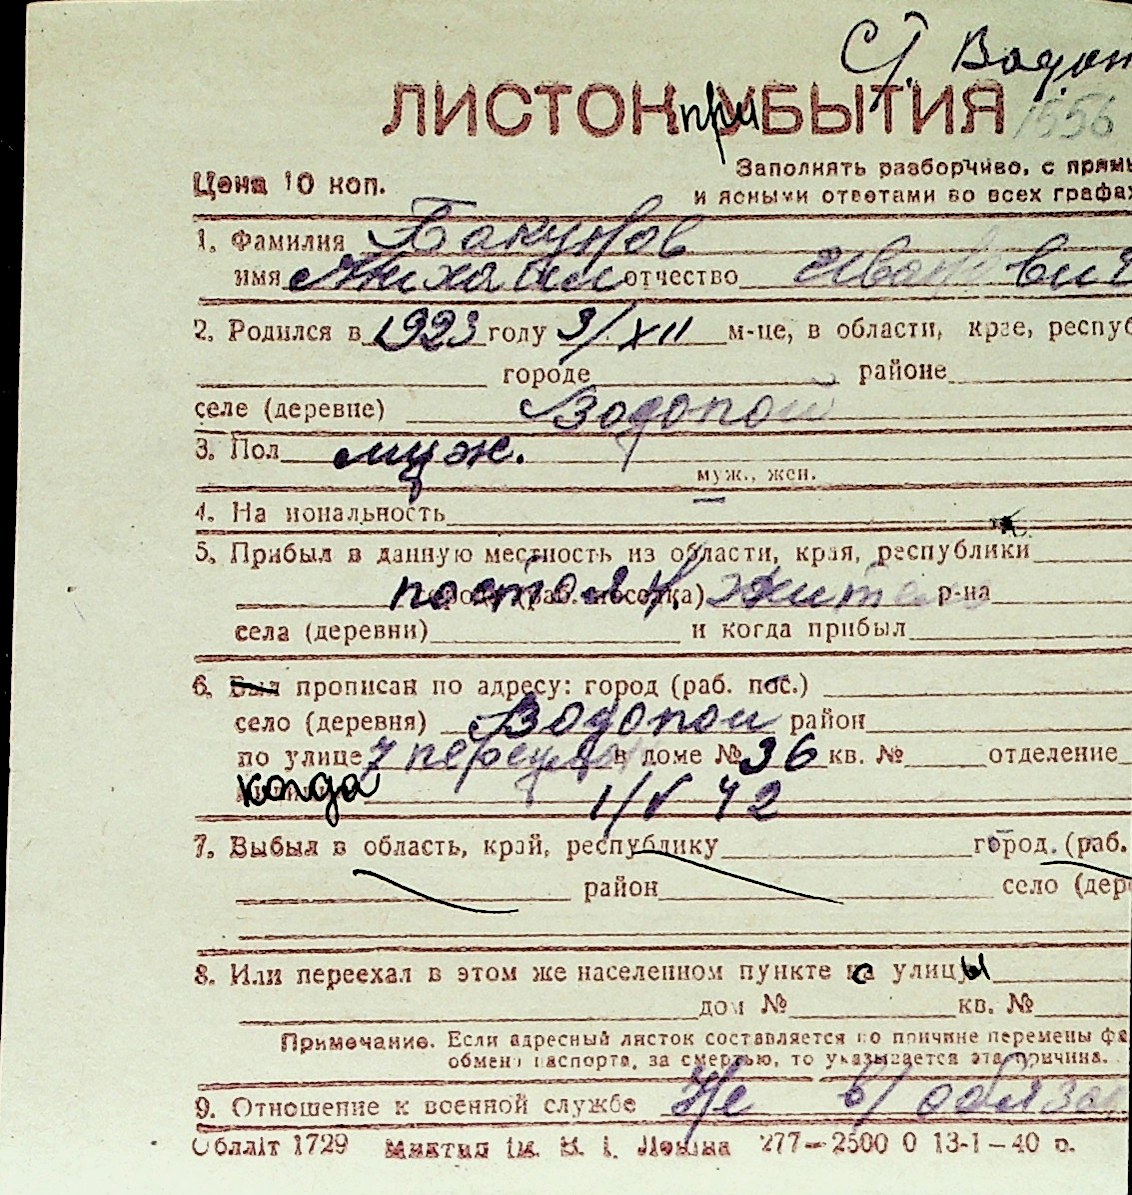 ст Водоп
ЛИСТОК при УБЫТИЯ 1556
Цена 10 коп.
Заполнять разборчиво, с прямы
и ясными ответами во всех графах
1. Фамилия Бакунов
имя Михаил отчество Иванович
2. Родился в 1923 году 9/XII м-це, в области, крае, респуб
городе районе
селе (деревне) Водопой
3. Пол муж.
муж., жен.
4. На иональность
5. Прибыл в данную местность из области, края, республики
постоян житель р-на
села (деревни) и когда прибыл
6. Был прописан по адресу: город (раб. пос.)
село (деревня) Водопой район
по улице 7 переулок в доме № 36 кв. № отделение
когда 1/V 42
7. Выбыл в область, край, республику город. (раб.
район село (дер
8. Или переехал в этом же населенном пункте с улицы
дом № кв. №
Примечание. Если адресный листок составляется по причине перемены фа
обмена паспорта, за смертью, то указывается эта причина.
9. Отношение к военной службе Не в/обязан
Обллiт 1729 Миктип iм. В. I. Ленiна 277—2500 0 13-1—40 р.